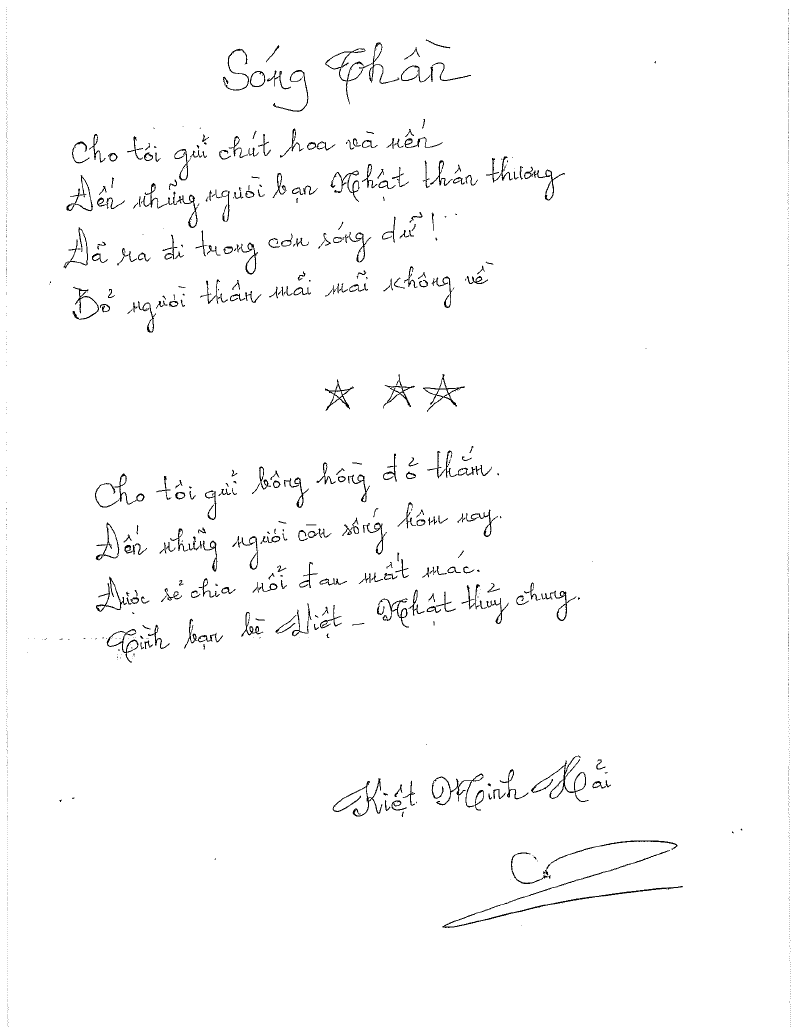 Sóng Thần
Cho tôi gửi chút hoa và nến
Đến những người bạn Nhật thân thương
Đã ra đi trong cơn sóng dữ!
Bỏ người thân mãi mãi không về
Cho tôi gửi bông hồng đỏ thắm.
Đến những người còn sống hôm nay.
Được sẻ chia nổi đau mất mác.
Tình bạn bè Việt - Nhật thủy chung.
Kiệt Minh Hải